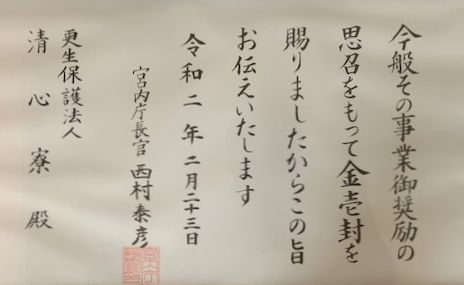 今般その事業御奨励の
思召をもって金壱封を
賜りましたからこの旨
お伝えいたします
令和二年二月二十三日
宮内庁長官 西村泰彦
更生保護法人
清心寮殿